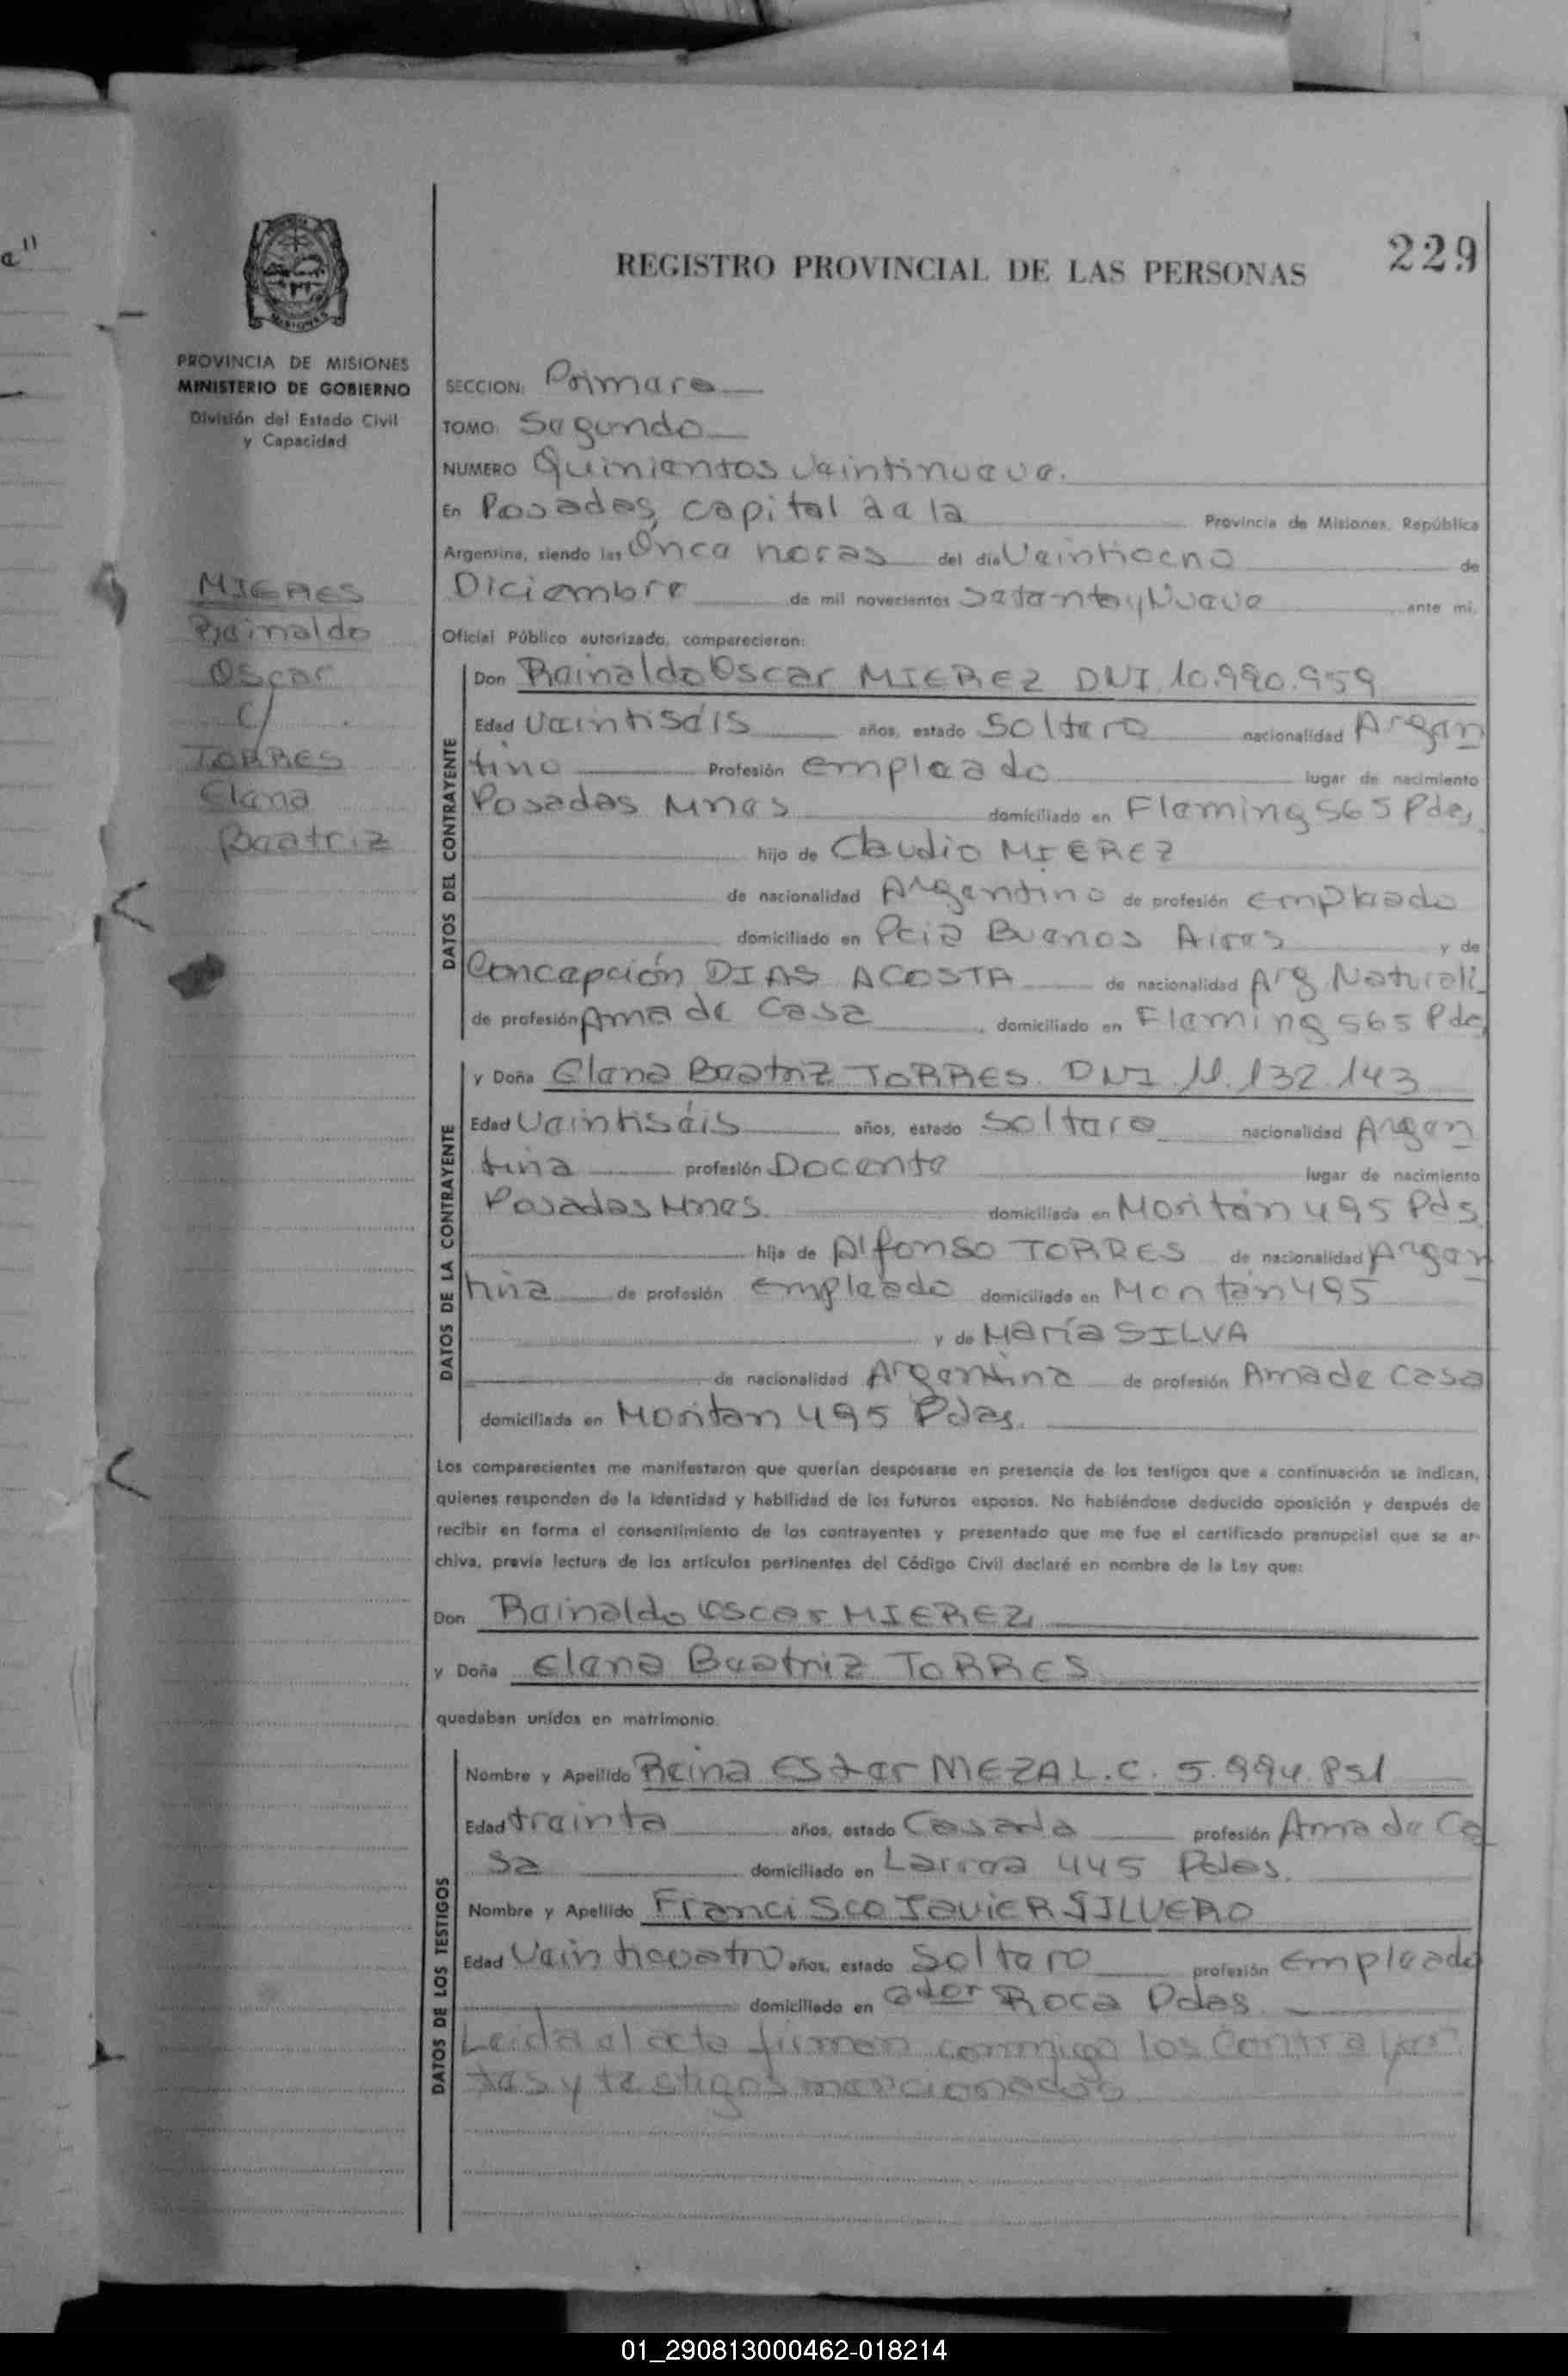 a"
229
REGISTRO PROVINCIAL DE LAS PERSONAS
MISIONES
PROVINCIA DE MISIONES
MINISTERIO DE GOBIERNO
División del Estado Civil
y Capacidad
MIERES
Reinaldo
Oscar
C/
TORRES
Elena
Beatriz
SECCION: Primera
TOMO: Segundo
NUMERO Quinientos Veintinueve.
En Posadas, capital de la Provincia de Misiones, República
Argentina, siendo las Once horas del dia Veintiocho de
Diciembre de mil novecientos Setenta y Nueve ante mi,
Oficial Público autorizado, comparecieron:
DATOS DEL CONTRAYENTE
Don Reinaldo Oscar MIEREZ DNI 10.990.959
Edad Veintiséis años, estado Soltero nacionalidad Argen
tino Profesión empleado lugar de nacimiento
Posadas Mnes domiciliado en Fleming 565 Pdas,
hijo de Claudio MIEREZ
de nacionalidad Argentino de profesión empleado
domiciliado en Pcia Buenos Aires y de
Concepción DIAS ACOSTA de nacionalidad Arg. Naturali
de profesión Ama de Casa, domiciliado en Fleming 565 Pdas
DATOS DE LA CONTRAYENTE
y Doña Elena Beatriz TORRES. DNI 11.132.143
Edad Veintiséis años, estado Soltera nacionalidad Argen
tina profesión Docente lugar de nacimiento
Posadas Mnes. domiciliada en Moritán 495 Pds.
hija de Alfonso TORRES de nacionalidad Argen
tina de profesión empleado domiciliado en Moritán 495
y de María SILVA
de nacionalidad Argentina de profesión Ama de Casa
domiciliada en Moritan 495 Pdas.
Los comparecientes me manifestaron que querían desposarse en presencia de los testigos que a continuación se indican,
quienes responden de la identidad y habilidad de los futuros esposos. No habiéndose deducido oposición y después de
recibir en forma el consentimiento de los contrayentes y presentado que me fue el certificado prenupcial que se ar-
chiva, previa lectura de los artículos pertinentes del Código Civil declaré en nombre de la Ley que:
Don Reinaldo Oscar MIEREZ
y Doña Elena Beatriz TORRES
quedaban unidos en matrimonio.
DATOS DE LOS TESTIGOS
Nombre y Apellido Reina Ester MEZA L.C. 5.994.851
Edad treinta años, estado Casada profesión Ama de Ca
sa domiciliado en Larrea 445 Pdas.
Nombre y Apellido Francisco Javier SILVERO
Edad Veinticuatro años, estado Soltero profesión Empleado
domiciliado en Gdor Roca Pdas.
Leída el acta firman conmigo los Contrayen
tes y testigos mencionados
01_290813000462-018214